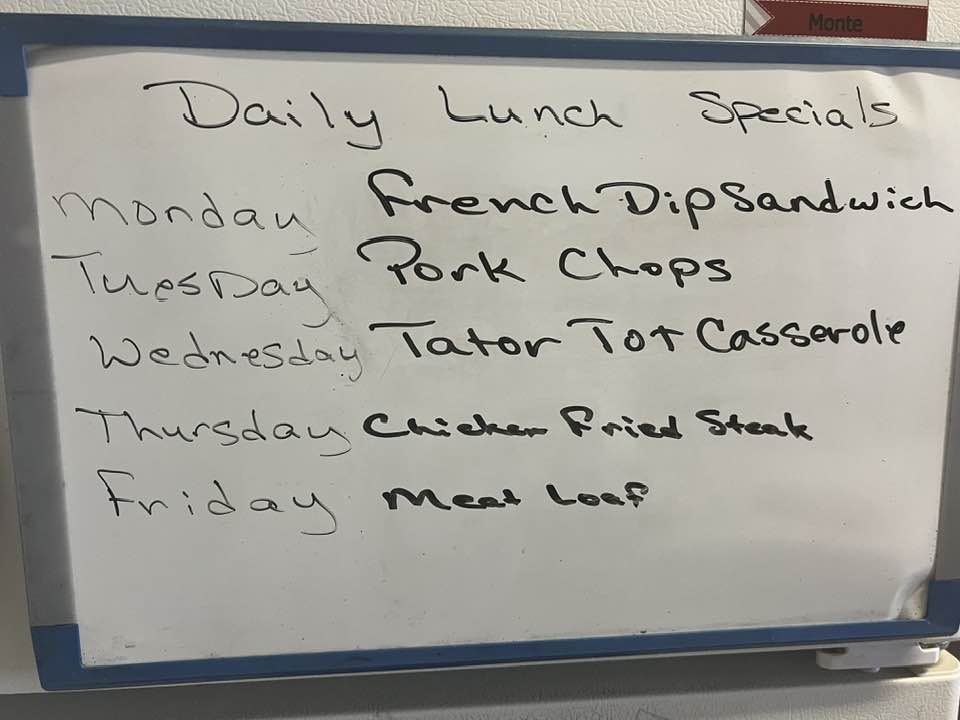 Monte
Daily Lunch Specials
Monday French Dip Sandwich
TuesDay Pork Chops
Wednesday Tator Tot Casserole
Thursday Chicken Fried Steak
Friday Meat Loaf